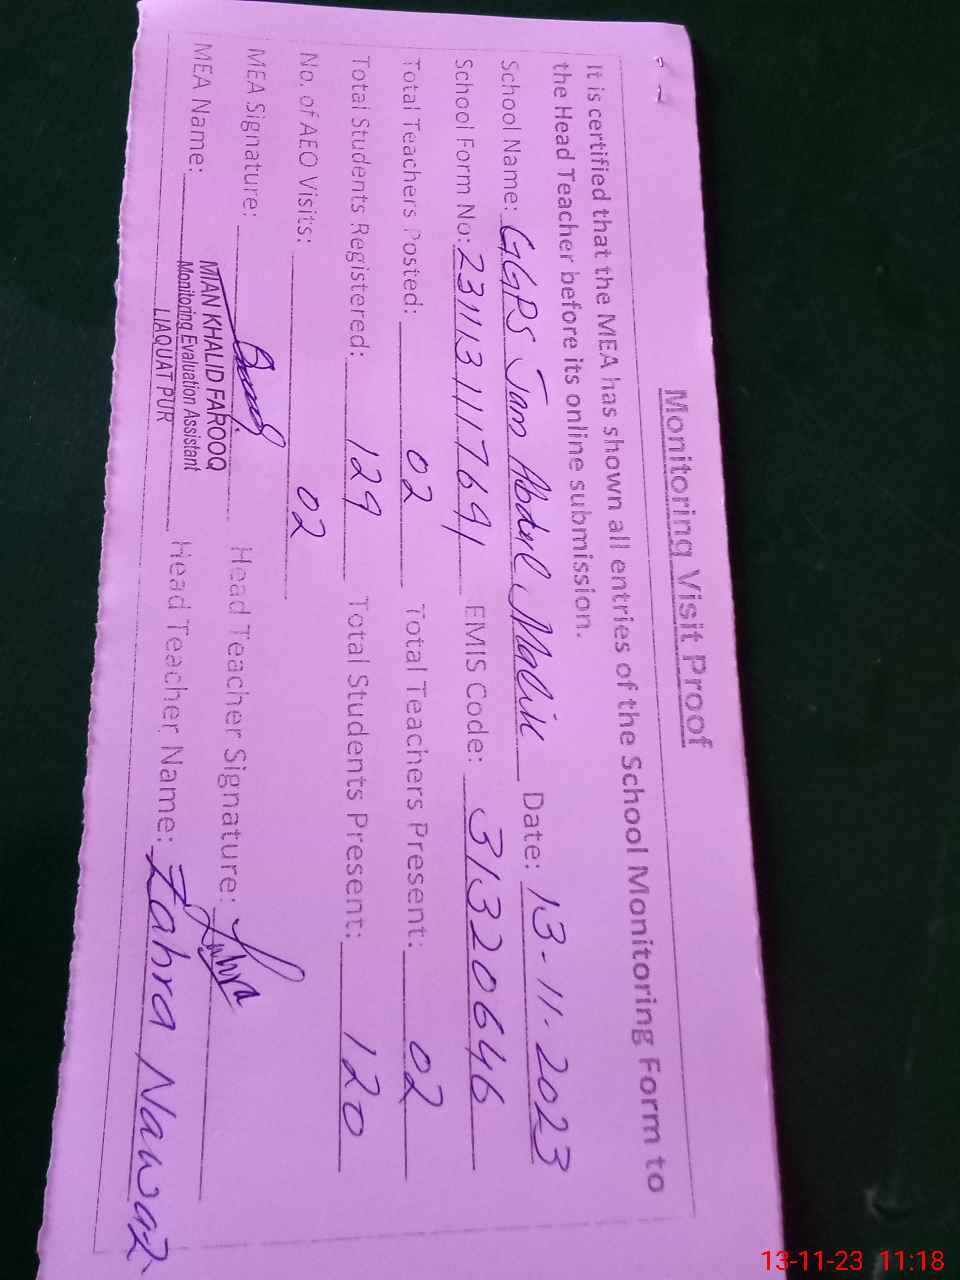 Monitoring Visit Proof
It is certified that the MEA has shown all entries of the School Monitoring Form to
the Head Teacher before its online submission.
School Name: GGPS Jam Abdul Malik Date: 13-11-2023
School Form No: 231131117691 EMIS Code: 31320646
Total Teachers Posted: 02 Total Teachers Present: 02
Total Students Registered: 129 Total Students Present: 120
No. of AEO Visits: 02
MEA Signature: Head Teacher Signature:
MEA Name: MIAN KHALID FAROOQ Head Teacher Name: Zahra Nawaz
Monitoring Evaluation Assistant
LIAQUAT PUR
13-11-23 11:18